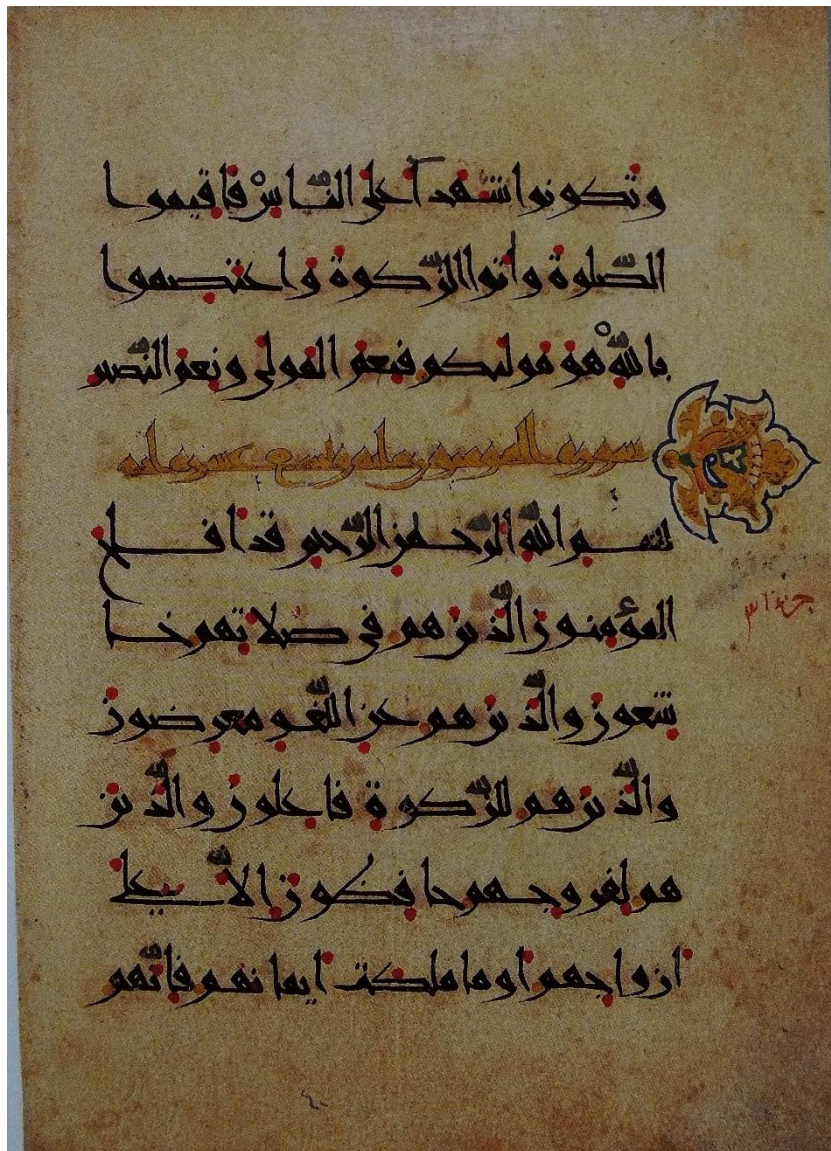 وتكونوا شهدآ على الناس فاقيموا
الصلوة وأتوا الزكوة واعتصموا
بالله هو موليكم فنعم المولى ونعم النصير
سورة المومنون مايه وتسع عشره ايه
بسم الله الرحمن الرحيم قد افلح
المؤمنون الذين هم في صلاتهم خا
شعون والذين هم عن اللغو معرضون
والذين هم للزكوة فاعلون والذين
هم لفروجهم حافظون الا على
ازواجهم او ما ملكت ايمانهم فانهم